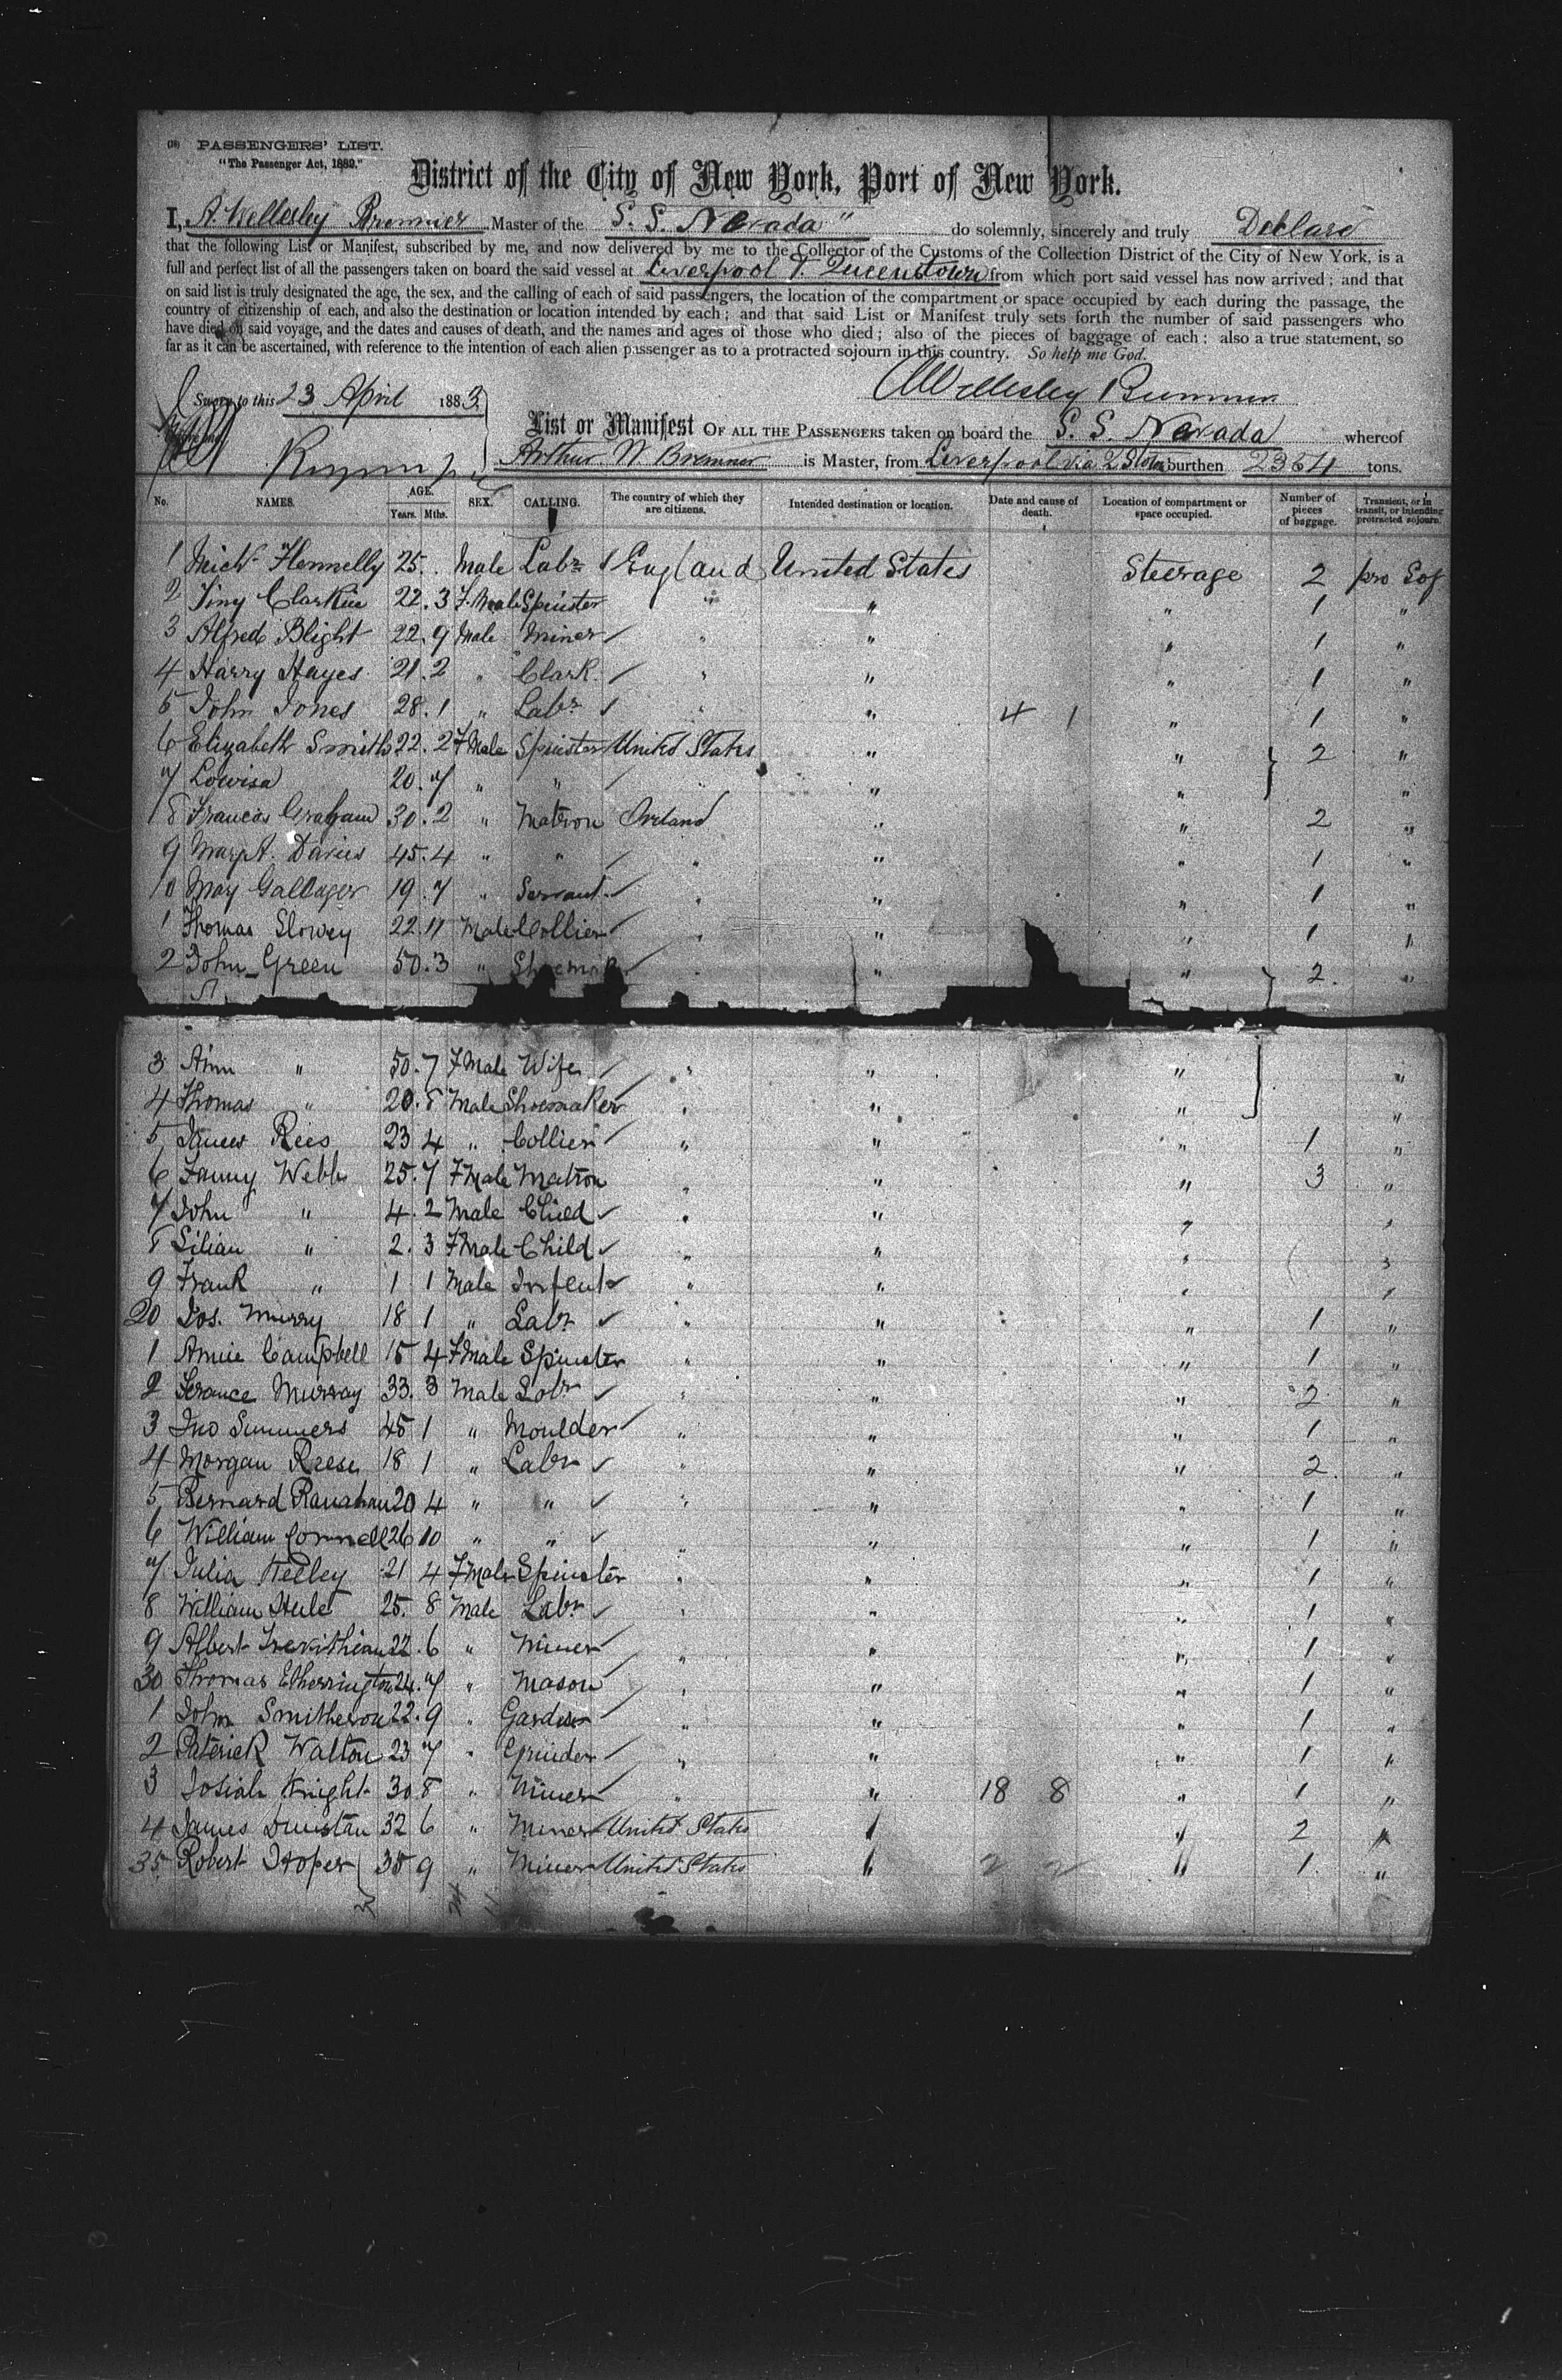 (18) PASSENGERS' LIST.
"The Passenger Act, 1882."
District of the City of New York, Port of New York.
I, A. Wellesley Bremner Master of the S. S. Nevada" do solemnly, sincerely and truly Declare
that the following List or Manifest, subscribed by me, and now delivered by me to the Collector of the Customs of the Collection District of the City of New York, is a
full and perfect list of all the passengers taken on board the said vessel at Liverpool & Queenstown from which port said vessel has now arrived; and that
on said list is truly designated the age, the sex, and the calling of each of said passengers, the location of the compartment or space occupied by each during the passage, the
country of citizenship of each, and also the destination or location intended by each; and that said List or Manifest truly sets forth the number of said passengers who
have died on said voyage, and the dates and causes of death, and the names and ages of those who died; also of the pieces of baggage of each: also a true statement, so
far as it can be ascertained, with reference to the intention of each alien passenger as to a protracted sojourn in this country. So help me God.
AWellesley Bremner
Sworn to this 23 April 1883
List or Manifest OF ALL THE PASSENGERS taken on board the S. S. Nevada whereof
Arthur W Bremner is Master, from Liverpool via burthen 2354 tons.
No. NAMES. AGE. Years. Mths. SEX. CALLING. The country of which they are citizens. Intended destination or location. Date and cause of death. Location of compartment or space occupied. Number of pieces of baggage. Transient, or in transit, or intending protracted sojourn.
1 Mich Flennelly 25 Male Labr England United States Steerage 2 pro Soj
2 Tiny Clarkin 22 3 F.Male Spinster " " " 1 "
3 Alfred Blight 22 9 Male Miner " " " 1 "
4 Harry Hayes 21 2 " Clark " " " 1 "
5 John Jones 28 1 " Labr " " 4 1 " 1 "
6 Elizabeth Smith 22 2 FMale Spinster United States " " 2 "
7 Lowisa 20 7 " " " " " "
8 Francis Graham 30 2 " Matron Ireland " " 2 "
9 Margt. Davies 45 4 " " " " " 1 "
10 May Gallager 19 7 " Servant " " " 1 "
1 Thomas Slowey 22 11 Male Collier " " " 1 "
2 John Green 50 3 " Shoemaker " " " 2 "
3 Ann " 50 7 FMale Wife " " " "
4 Thomas " 20 8 Male Shoemaker " " " "
5 James Rees 23 4 " Collier " " " 1 "
6 Fanny Webb 25 7 FMale Matron " " " 3 "
7 John " 4 2 Male Child " " " "
8 Lilian " 2 3 FMale Child " " " "
9 Frank " 1 1 Male Infent " " " "
20 Jos. Murry 18 1 " Labr " " " 1 "
1 Annie Campbell 15 4 FMale Spinster " " " 1 "
2 Murray 33 3 Male Labr " " " 2 "
3 Jno Summers 45 1 " Moulder " " " 1 "
4 Morgan Reese 18 1 " Labr " " " 2 "
5 Bernard Ranahan 20 4 " " " " " 1 "
6 William Connell 26 10 " " " " " 1 "
7 Julia Keeley 21 4 FMale Spinster " " " 1 "
8 William Hulet 25 8 Male Labr " " " 1 "
9 Albert 22 6 " Miner " " " 1 "
30 Thomas Etherrington 24 7 " Mason " " " 1 "
1 John Smitheron 22 9 " " " " 1 "
2 Paterick Walton 23 7 " Grinder " " " 1 "
3 Josiah Knight 30 8 " Miner " " 18 8 " 1 "
4 James Dunstan 32 6 " Miner United States " " 2 "
35 Robert Hoper 38 9 " Miner United States " 2 2 " 1 "